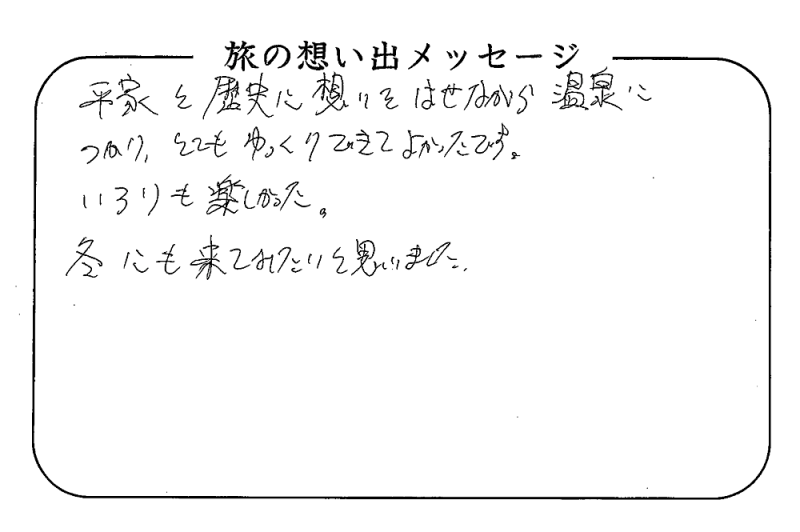 旅の想い出メッセージ
平家と歴史に想いをはせながら温泉に
つかり、とてもゆっくりできてよかったです。
いろりも楽しかった。
冬にも来てみたいと思いました。